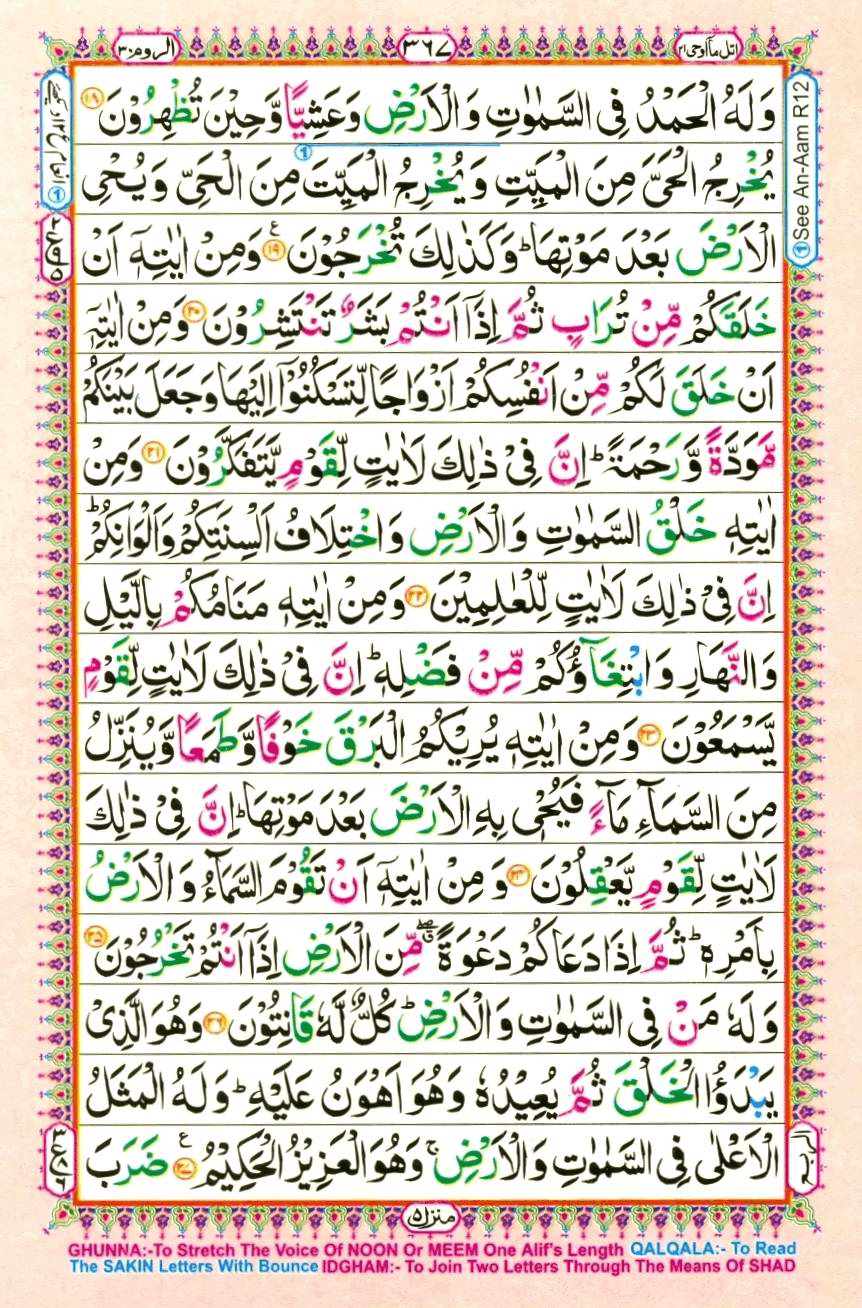 اتل مآ اوحی ۲۱
۳۶۷
الروم ۳۰
وَلَهُ الْحَمْدُ فِی السَّمٰوٰتِ وَالْاَرْضِ وَعَشِیًّا وَّحِیْنَ تُظْهِرُوْنَ ۱۸
یُخْرِجُ الْحَیَّ مِنَ الْمَیِّتِ وَیُخْرِجُ الْمَیِّتَ مِنَ الْحَیِّ وَیُحْیِ
الْاَرْضَ بَعْدَ مَوْتِهَا ؕ وَكَذٰلِكَ تُخْرَجُوْنَ ۱۹ ع وَمِنْ اٰیٰتِهٖۤ اَنْ
خَلَقَكُمْ مِّنْ تُرَابٍ ثُمَّ اِذَاۤ اَنْتُمْ بَشَرٌ تَنْتَشِرُوْنَ ۲۰ وَمِنْ اٰیٰتِهٖۤ
اَنْ خَلَقَ لَكُمْ مِّنْ اَنْفُسِكُمْ اَزْوَاجًا لِّتَسْكُنُوْۤا اِلَیْهَا وَجَعَلَ بَیْنَكُمْ
مَّوَدَّةً وَّرَحْمَةً ؕ اِنَّ فِیْ ذٰلِكَ لَاٰیٰتٍ لِّقَوْمٍ یَّتَفَكَّرُوْنَ ۲۱ وَمِنْ
اٰیٰتِهٖ خَلْقُ السَّمٰوٰتِ وَالْاَرْضِ وَاخْتِلَافُ اَلْسِنَتِكُمْ وَاَلْوَانِكُمْ ؕ
اِنَّ فِیْ ذٰلِكَ لَاٰیٰتٍ لِّلْعٰلِمِیْنَ ۲۲ وَمِنْ اٰیٰتِهٖ مَنَامُكُمْ بِالَّیْلِ
وَالنَّهَارِ وَابْتِغَآؤُكُمْ مِّنْ فَضْلِهٖ ؕ اِنَّ فِیْ ذٰلِكَ لَاٰیٰتٍ لِّقَوْمٍ
یَّسْمَعُوْنَ ۲۳ وَمِنْ اٰیٰتِهٖ یُرِیْكُمُ الْبَرْقَ خَوْفًا وَّطَمَعًا وَّیُنَزِّلُ
مِنَ السَّمَآءِ مَآءً فَیُحْیٖ بِهِ الْاَرْضَ بَعْدَ مَوْتِهَا ؕ اِنَّ فِیْ ذٰلِكَ
لَاٰیٰتٍ لِّقَوْمٍ یَّعْقِلُوْنَ ۲۴ وَمِنْ اٰیٰتِهٖۤ اَنْ تَقُوْمَ السَّمَآءُ وَالْاَرْضُ
بِاَمْرِهٖ ؕ ثُمَّ اِذَا دَعَاكُمْ دَعْوَةً مِّنَ الْاَرْضِ اِذَاۤ اَنْتُمْ تَخْرُجُوْنَ ۲۵
وَلَهٗ مَنْ فِی السَّمٰوٰتِ وَالْاَرْضِ ؕ كُلٌّ لَّهٗ قَانِتُوْنَ ۲۶ وَهُوَ الَّذِیْ
یَبْدَؤُا الْخَلْقَ ثُمَّ یُعِیْدُهٗ وَهُوَ اَهْوَنُ عَلَیْهِ ؕ وَلَهُ الْمَثَلُ
الْاَعْلٰی فِی السَّمٰوٰتِ وَالْاَرْضِ ۚ وَهُوَ الْعَزِیْزُ الْحَكِیْمُ ۲۷ ع ضَرَبَ
منزل ۵
See An-Aam R12
GHUNNA:-To Stretch The Voice Of NOON Or MEEM One Alif's Length QALQALA:- To Read
The SAKIN Letters With Bounce IDGHAM:- To Join Two Letters Through The Means Of SHAD